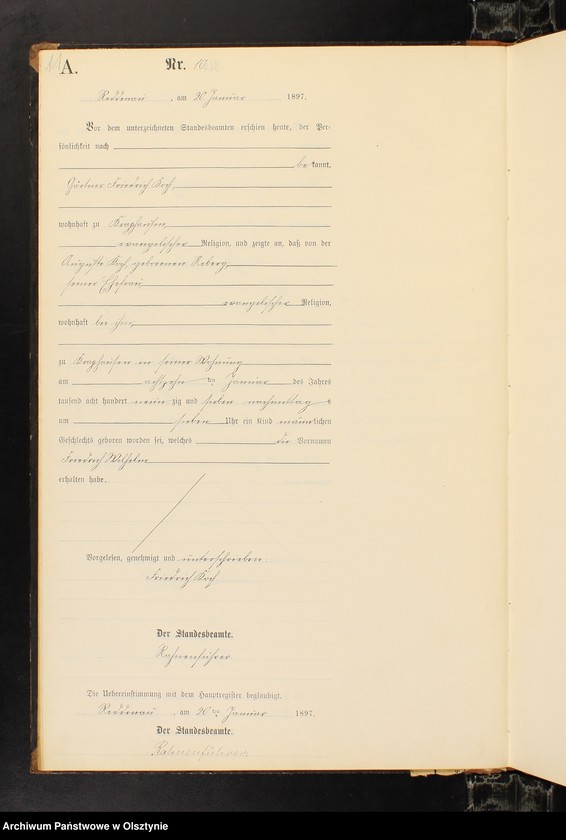 A.
Nr. 10.
Reddenau, am 20 Januar 1897.
Vor dem unterzeichneten Standesbeamten erschien heute, der Per-
sönlichkeit nach
bekannt,
Gärtner Friedrich Koch,
wohnhaft zu Kraphausen,
evangelischer Religion, und zeigte an, daß von der
Auguste Koch, geborenen Reberg,
seiner Ehefrau,
evangelischer Religion,
wohnhaft bei ihm,
zu Kraphausen in seiner Wohnung
am achtzehn ten Januar des Jahres
tausend acht hundert neun zig und sieben nachmittags
um sieben Uhr ein Kind männlichen
Geschlechts geboren worden sei, welches die Vornamen
Friedrich Wilhelm
erhalten habe.
Vorgelesen, genehmigt und unterschrieben.
Friedrich Koch
Der Standesbeamte.
Rahnenführer.
Die Uebereinstimmung mit dem Hauptregister beglaubigt.
Reddenau, am 20 ten Januar 1897.
Der Standesbeamte.
Rahnenführer.
Archiwum Państwowe w Olsztynie